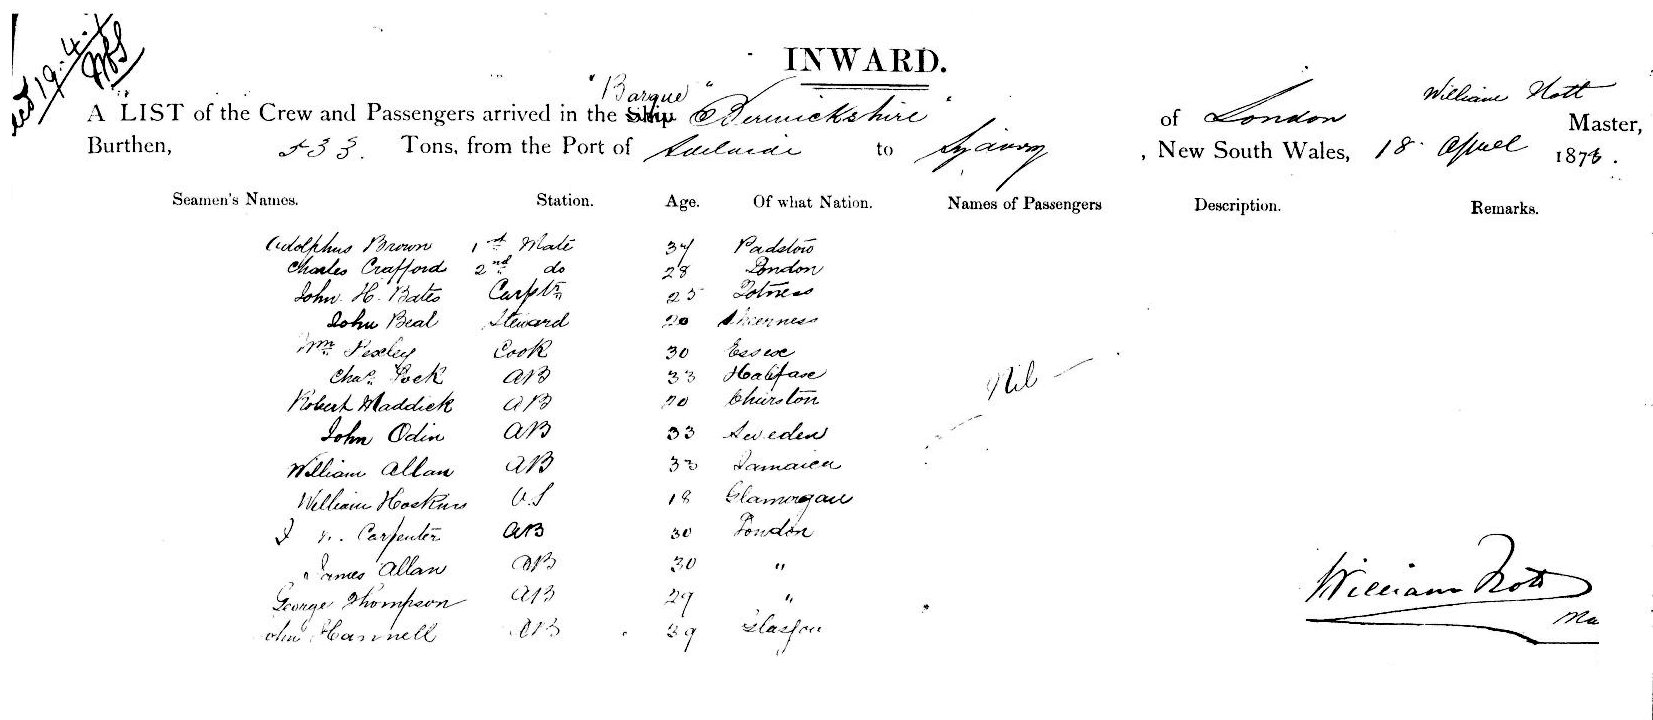 19.4.
INWARD.
"Barque"
William Nott
A LIST of the Crew and Passengers arrived in the Ship Berwickshire" of London Master,
Burthen, 533. Tons, from the Port of Adelaide to Sydney, New South Wales, 18 April 1873.
Seamen's Names. Station. Age. Of what Nation. Names of Passengers Description. Remarks.
Adolphus Brown 1st Mate 37 Padstow
Charles Crafford 2nd do 28 London
John H. Bates Carptr 25 Totness
John Beal Steward 20 Sheerness
Wm Pexley Cook 30 Essex
Chas. AB 33 Halifax
Nil
Robert Maddick AB 20 Churston
John Odin AB 33 Sweden
William Allan AB 33 Jamaica
William Hoskins O.S 18 Glamorgan
Carpenter AB 30 London
James Allan AB 30 "
George Thompson AB 29 "
John Hannell AB 39 Glasgow
William Nott
Ma